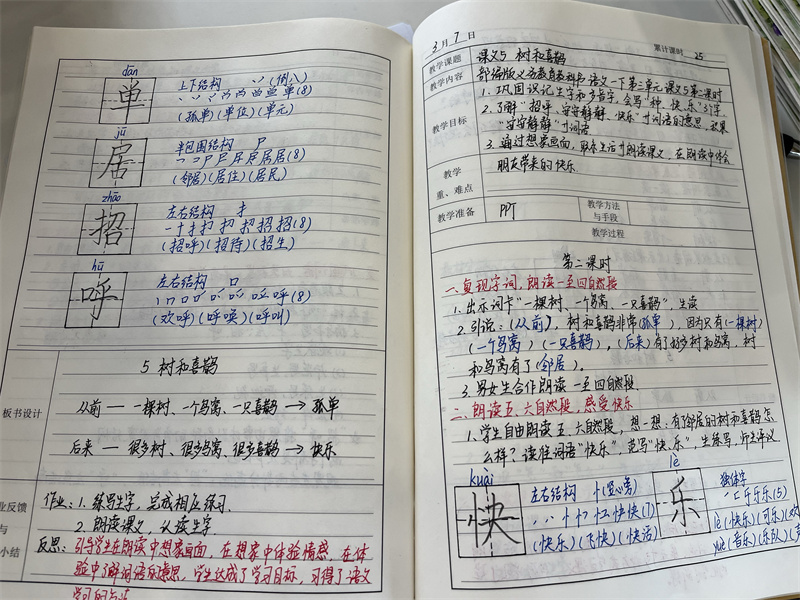 dān
单
上下结构 丷(倒八)
(8)
(孤单)(单位)(单元)
jū
居
半包围结构 尸
(8)
(邻居)(居住)(居民)
zhāo
招
左右结构 扌
(8)
(招呼)(招待)(招生)
hū
呼
左右结构 口
(8)
(欢呼)(呼唤)(呼叫)
板书设计
5 树和喜鹊
从前 — 一棵树、一个鸟窝、一只喜鹊 → 孤单
后来 — 很多树、很多鸟窝、很多喜鹊 → 快乐
业反馈
与
小结
作业:1. 练写生字,完成相应练习.
2. 朗读课文,认读生字.
反思:引导学生在朗读中想象画面,在想象中体验情感,在体
验中了解词语的意思,学生达成了学习目标,习得了语文
学习的方法
3月7日
累计课时 25
教学课题 课文5 树和喜鹊
教学内容 部编版义务教育教科书语文一下第三单元课文5第二课时
教学目标
1. 巩固识记生字和多音字,会写"种、快、乐"3个字.
2. 了解"招呼、安安静静、快乐"等词语的意思,积累
"安安静静"等词语
3. 通过想象画面,联系生活等朗读课文,在朗读中体会
朋友带来的快乐.
教学
重、难点
教学准备 PPT 教学方法
与手段
教学过程
第二课时
一、复现字词,朗读一至四自然段
1. 出示词卡"一棵树、一个鸟窝、一只喜鹊",生读
2. 引说:(从前),树和喜鹊非常(孤单),因为只有(一棵树)
(一个鸟窝)(一只喜鹊),(后来)有了好多树和鸟窝,树
和鸟窝有了(邻居)。
3. 男女生合作朗读一至四自然段
二、朗读五、六自然段,感受快乐
1. 学生自由朗读五、六自然段,想一想:有了邻居的树和喜鹊怎
么样?读准词语"快乐",范写"快、乐",生练写,师生评议
kuài
快
左右结构 忄(竖心旁)
(7)
(快乐)(飞快)(快活)
lè
乐
独体字
(5)
lè(快乐)(可乐)
yuè(音乐)(乐队)